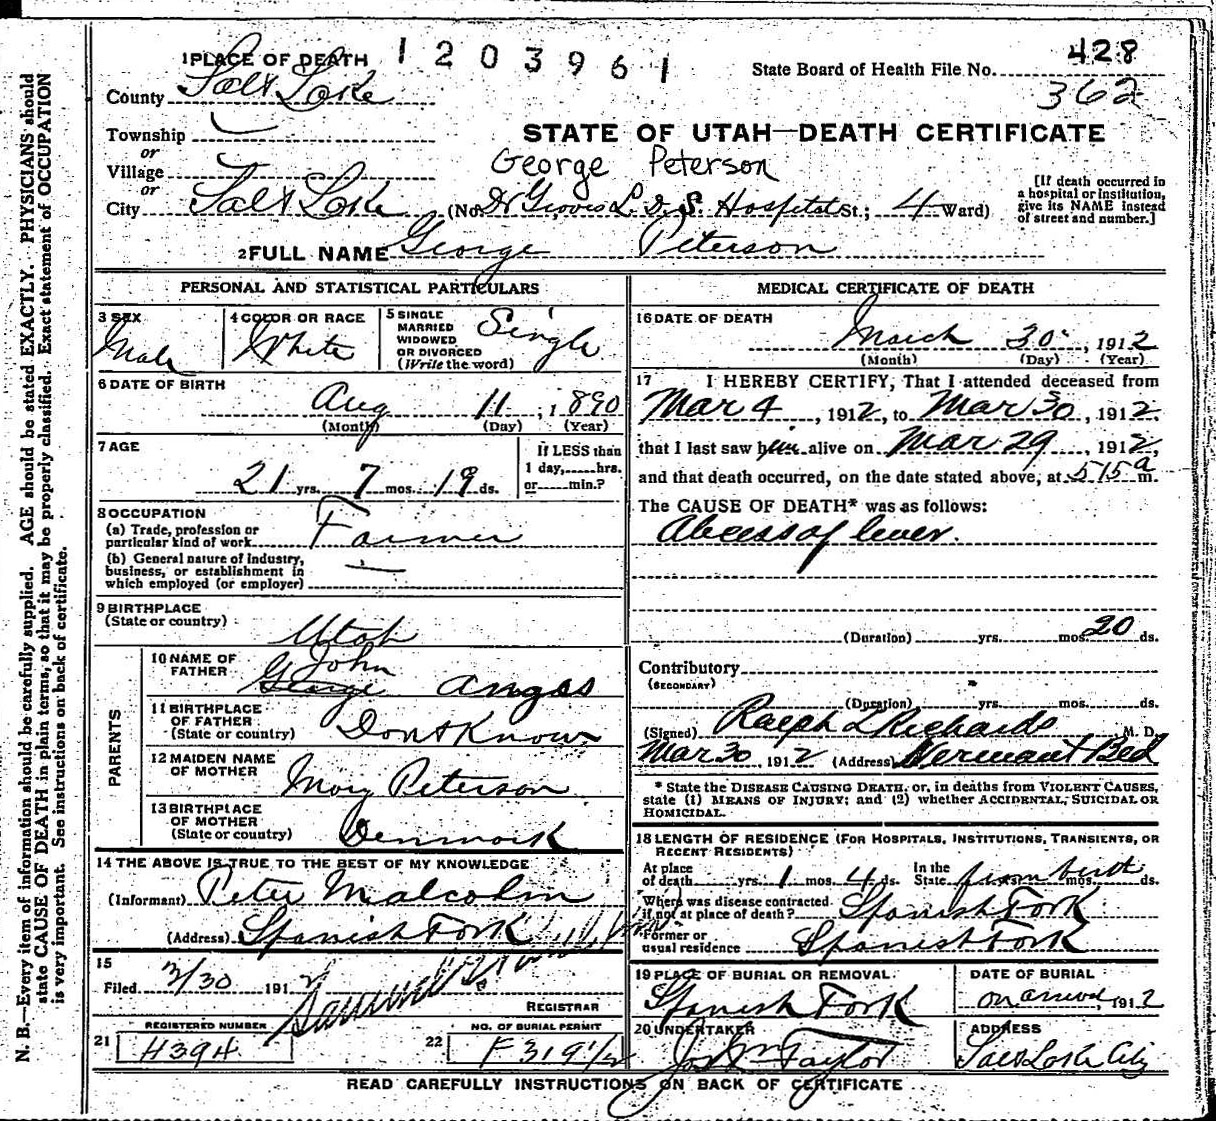 1203961
428
State Board of Health File No.
362
1 PLACE OF DEATH
County Salt Lake
Township
or
Village
or
City Salt Lake
STATE OF UTAH—DEATH CERTIFICATE
George Peterson
(No. Dr Groves L. D. S. Hospital St.; 4 Ward)
[If death occurred in
a hospital or institution,
give its NAME instead
of street and number.]
2 FULL NAME George Peterson
PERSONAL AND STATISTICAL PARTICULARS
3 SEX
Male
4 COLOR OR RACE
White
5 SINGLE
MARRIED
WIDOWED
OR DIVORCED
(Write the word)
Single
6 DATE OF BIRTH
Aug 11, 1890
(Month) (Day) (Year)
7 AGE
21 yrs. 7 mos. 19 ds.
If LESS than
1 day, hrs.
or min.?
8 OCCUPATION
(a) Trade, profession or
particular kind of work Farmer
(b) General nature of industry,
business, or establishment in
which employed (or employer)
9 BIRTHPLACE
(State or country)
Utah
PARENTS
10 NAME OF
FATHER
John
George Angos
11 BIRTHPLACE
OF FATHER
(State or country) Dont Know
12 MAIDEN NAME
OF MOTHER
Mary Peterson
13 BIRTHPLACE
OF MOTHER
(State or country) Denmark
14 THE ABOVE IS TRUE TO THE BEST OF MY KNOWLEDGE
(Informant) Peter Malcolm
(Address) Spanish Fork
15
Filed 3/30 1912
REGISTRAR
REGISTERED NUMBER
21 H394
NO. OF BURIAL PERMIT
22 F 319½
MEDICAL CERTIFICATE OF DEATH
16 DATE OF DEATH
March 30, 1912
(Month) (Day) (Year)
17 I HEREBY CERTIFY, That I attended deceased from
Mar 4, 1912, to Mar 30, 1912,
that I last saw him alive on Mar 29, 1912,
and that death occurred, on the date stated above, at 515 a m.
The CAUSE OF DEATH* was as follows:
Abcess of liver.
(Duration) yrs. mos. 20 ds.
Contributory
(SECONDARY)
(Duration) yrs. mos. ds.
(Signed) Ralph T Richards M. D.
Mar 30, 1912 (Address) Vermont Bld
* State the DISEASE CAUSING DEATH, or, in deaths from VIOLENT CAUSES,
state (1) MEANS OF INJURY; and (2) whether ACCIDENTAL, SUICIDAL OR
HOMICIDAL.
18 LENGTH OF RESIDENCE (FOR HOSPITALS, INSTITUTIONS, TRANSIENTS, OR
RECENT RESIDENTS)
At place
of death yrs. 1 mos. 4 ds.
In the
State from birth yrs. mos. ds.
Where was disease contracted
if not at place of death? Spanish Fork
Former or
usual residence Spanish Fork
19 PLACE OF BURIAL OR REMOVAL
Spanish Fork
DATE OF BURIAL
on arrival, 1912
20 UNDERTAKER
Jos Wm Taylor
ADDRESS
Salt Lake City
READ CAREFULLY INSTRUCTIONS ON BACK OF CERTIFICATE
N. B.—Every item of information should be carefully supplied. AGE should be stated EXACTLY. PHYSICIANS should
state CAUSE OF DEATH in plain terms, so that it may be properly classified. Exact statement of OCCUPATION
is very important. See instructions on back of certificate.